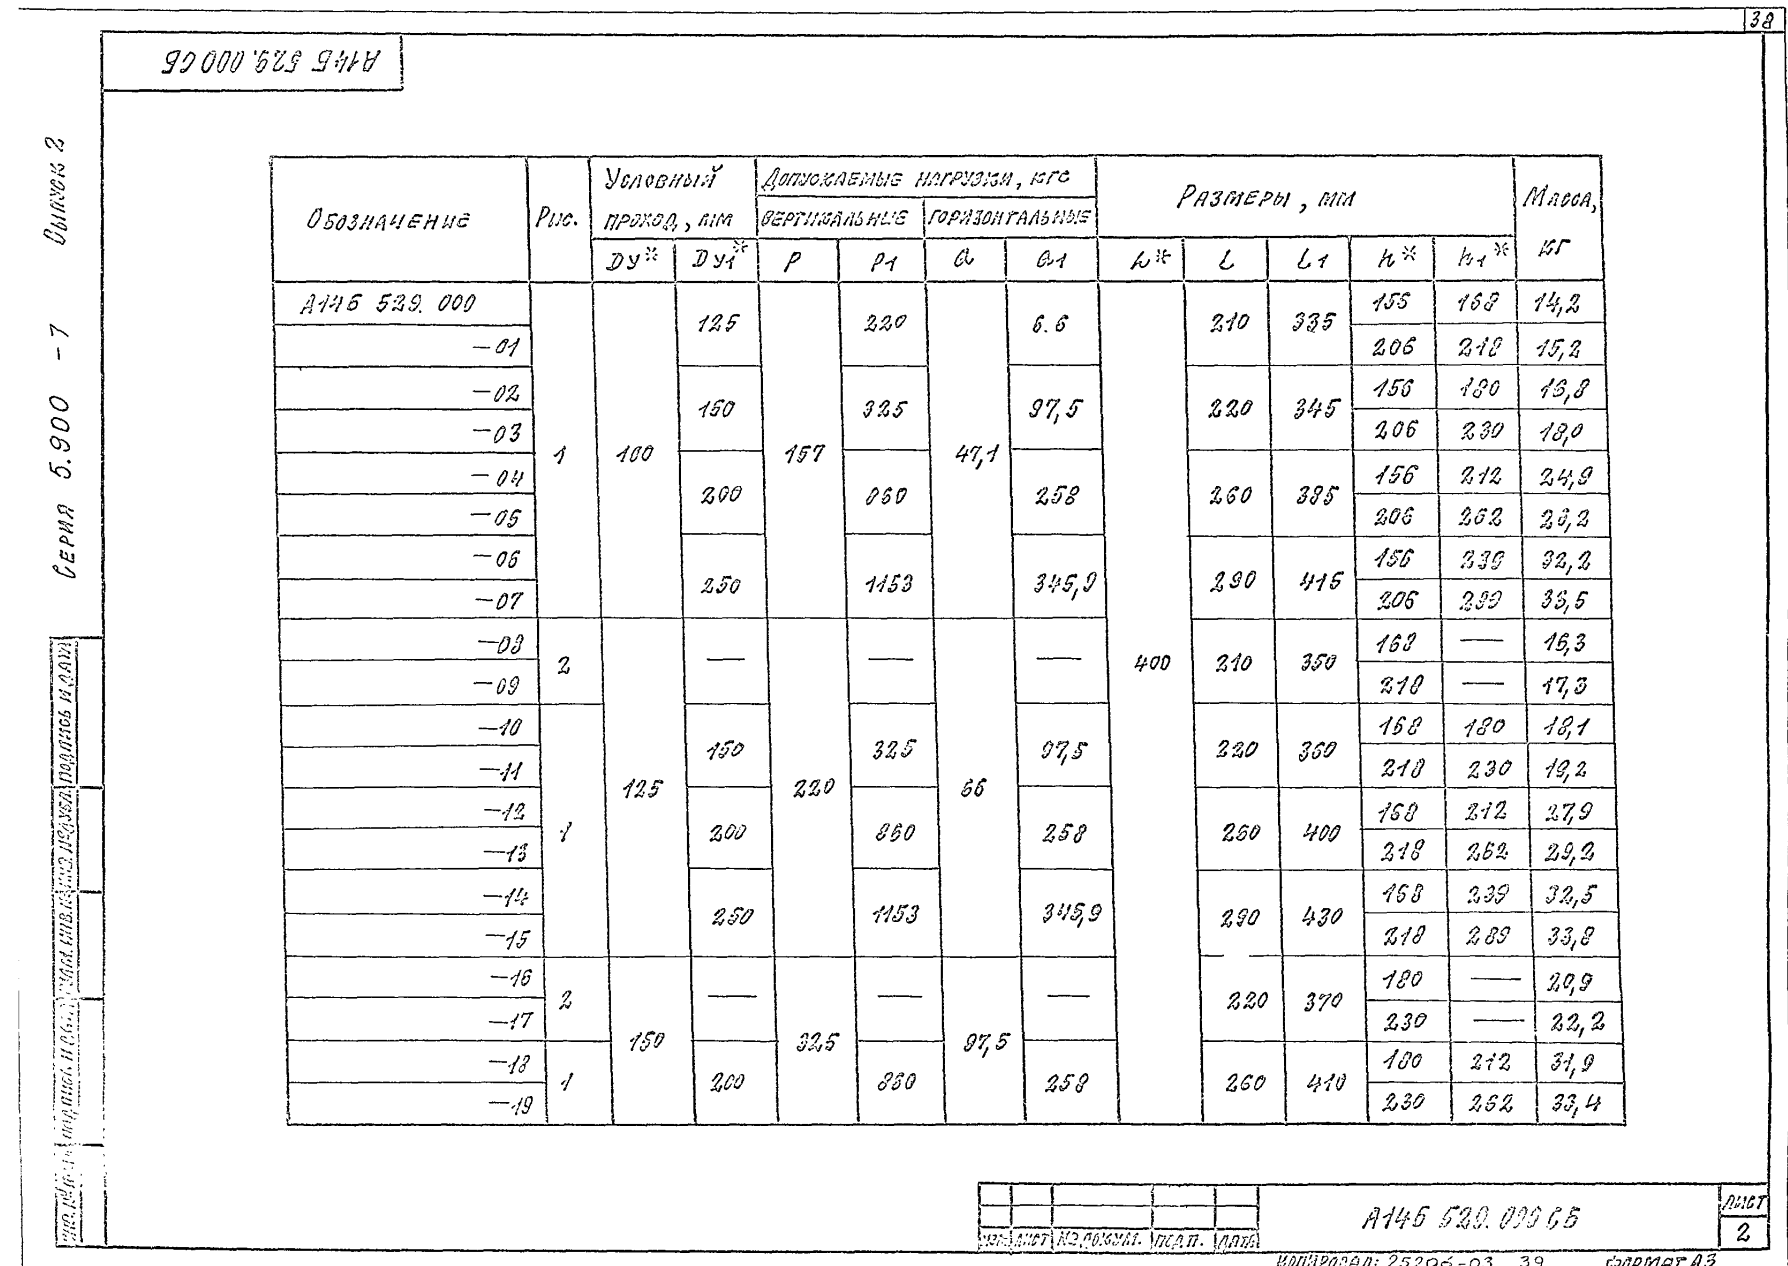 38
А14Б 529.000 СБ
Серия 5.900 -7 Выпуск 2
Обозначение Рис. Условный проход, мм Допускаемые нагрузки, кгс Размеры, мм Масса, кг
вертикальные горизонтальные
Dу* Dу1* P P1 Q Q1 L* l l1 h* h1*
А14Б 529.000 1 100 125 157 220 47,1 6.6 400 210 335 156 168 14,2
-01 206 218 15,2
-02 150 325 97,5 220 345 156 180 16,8
-03 206 230 18,0
-04 200 860 258 260 385 156 212 24,9
-05 206 262 26,2
-06 250 1153 345,9 290 415 156 239 32,2
-07 206 289 33,5
-08 2 125 — 220 — 66 — 210 350 168 — 16,3
-09 218 — 17,3
-10 1 150 325 97,5 220 360 168 180 18,1
-11 218 230 19,2
-12 200 860 258 260 400 168 212 27,9
-13 218 262 29,2
-14 250 1153 345,9 290 430 168 239 32,5
-15 218 289 33,8
-16 2 150 — 325 — 97,5 — 220 370 180 — 20,9
-17 230 — 22,2
-18 1 200 860 258 260 410 180 212 31,9
-19 230 262 33,4
Подпись и дата
Взам. инв. №
А14Б 529.000 СБ
Лист
2
Изм. Лист № докум. Подп. Дата
Копировал: 25206-03 39 Формат А3